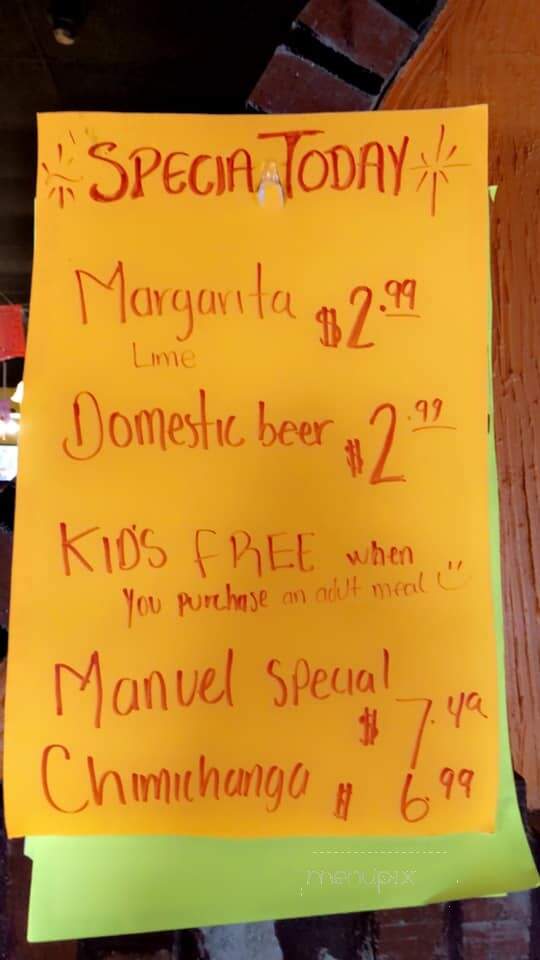 SPECIA TODAY
Margarita $2.99
Lime
Domestic beer $2.99
KID'S FREE when
You purchase an adult meal
Manuel Special
$ 7.49
Chimichanga $ 6.99
menupix